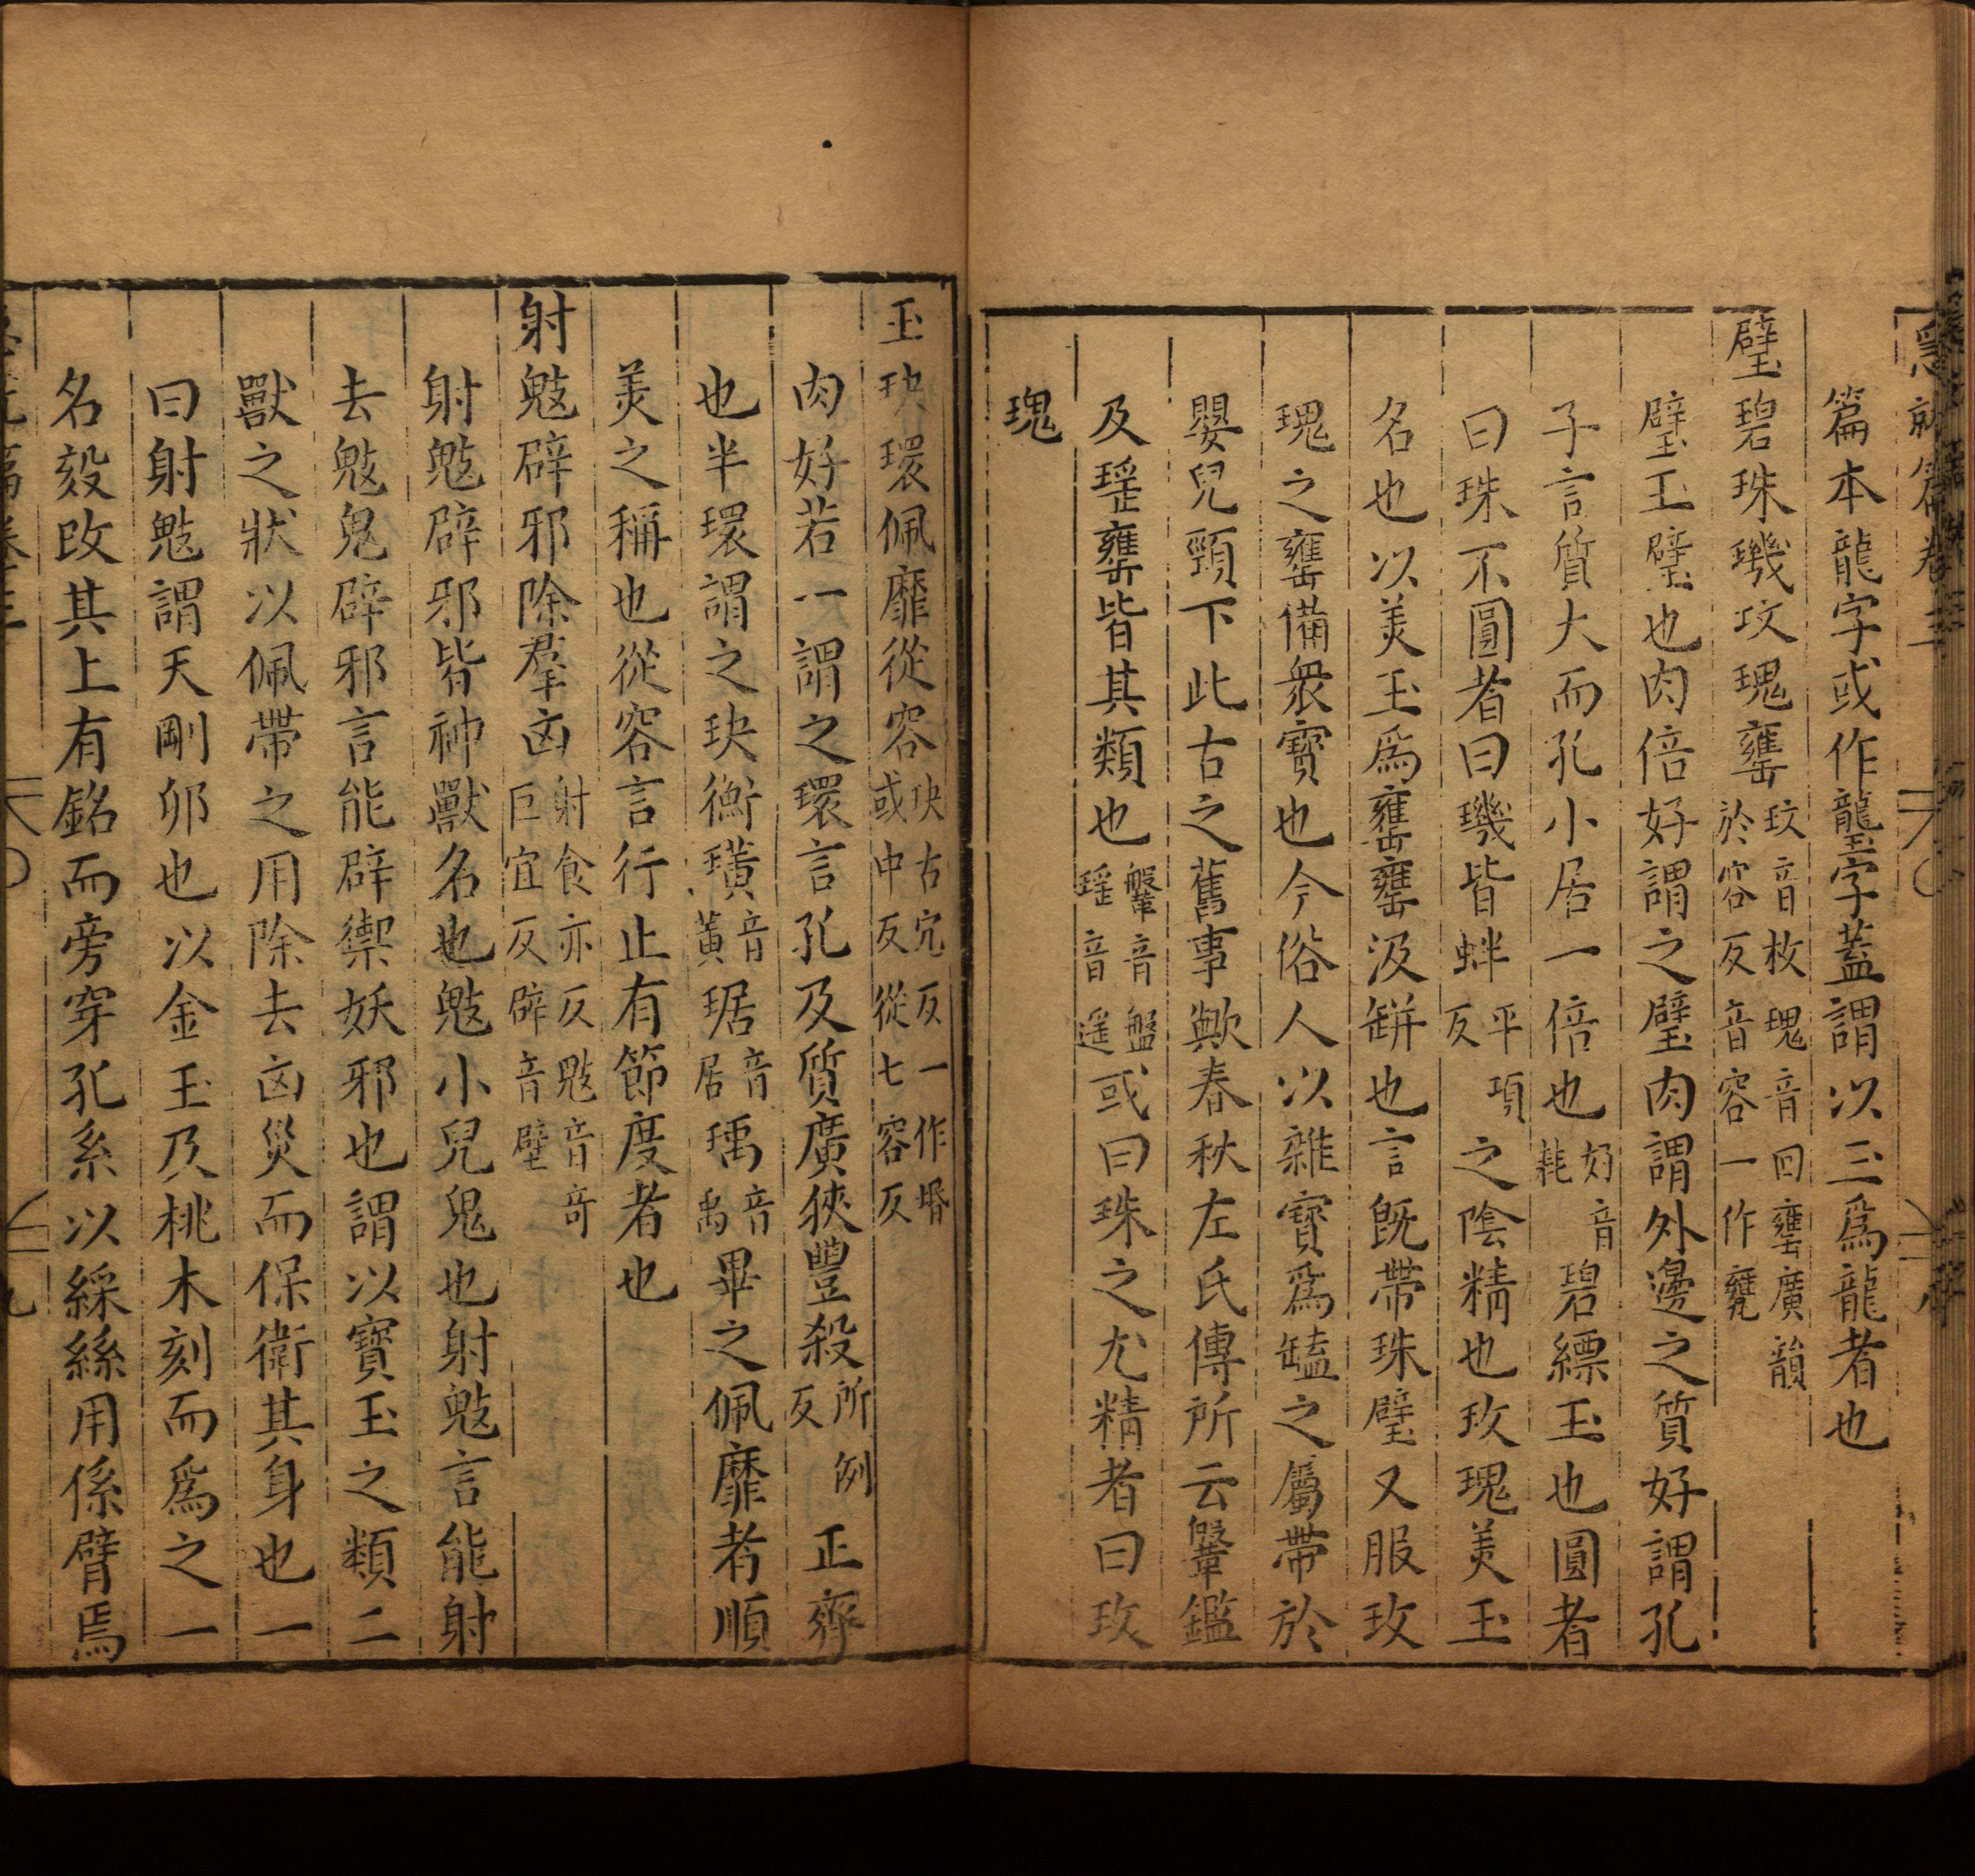 急就篇卷三
篇本龍字或作壟字蓋謂以玉爲龍者也
璧碧珠璣玟瑰罋玟音枚瑰音回罋廣韻於容反音容一作甕
璧玉璧也肉倍好謂之璧肉謂外邊之質好謂孔
子言質大而孔小居一倍也好音耗碧縹玉也圓者
曰珠不圓者曰璣皆蚌平項反之陰精也玫瑰美玉
名也以美玉爲罋罋汲缾也言旣帶珠璧又服玫
瑰之罋備衆寶也今俗人以雜寶爲𦈢之屬帶於
嬰兒頸下此古之舊事歟春秋左氏傳所云鞶鑑
及瑤罋皆其類也鞶音盤瑤音遥或曰珠之尤精者曰玫
瑰
玉玦環佩靡從容玦古宂反一作㻺或中反從七容反
肉好若一謂之環言孔及質廣狹豐殺所例反正齊
也半環謂之玦衡璜音黃琚音居瑀音禹畢之佩靡者順
美之稱也從容言行止有節度者也
射鬾辟邪除羣凶射食亦反鬾音奇巨宜反辟音壁
射鬾辟邪皆神獸名也鬾小兒鬼也射鬾言能射
去鬾鬼辟邪言能辟禦妖邪也謂以寶玉之類二
獸之狀以佩帶之用除去凶災而保衛其身也一
曰射鬾謂天剛卯也以金玉及桃木刻而爲之一
名㱾改其上有銘而旁穿孔系以綵絲用係臂焉